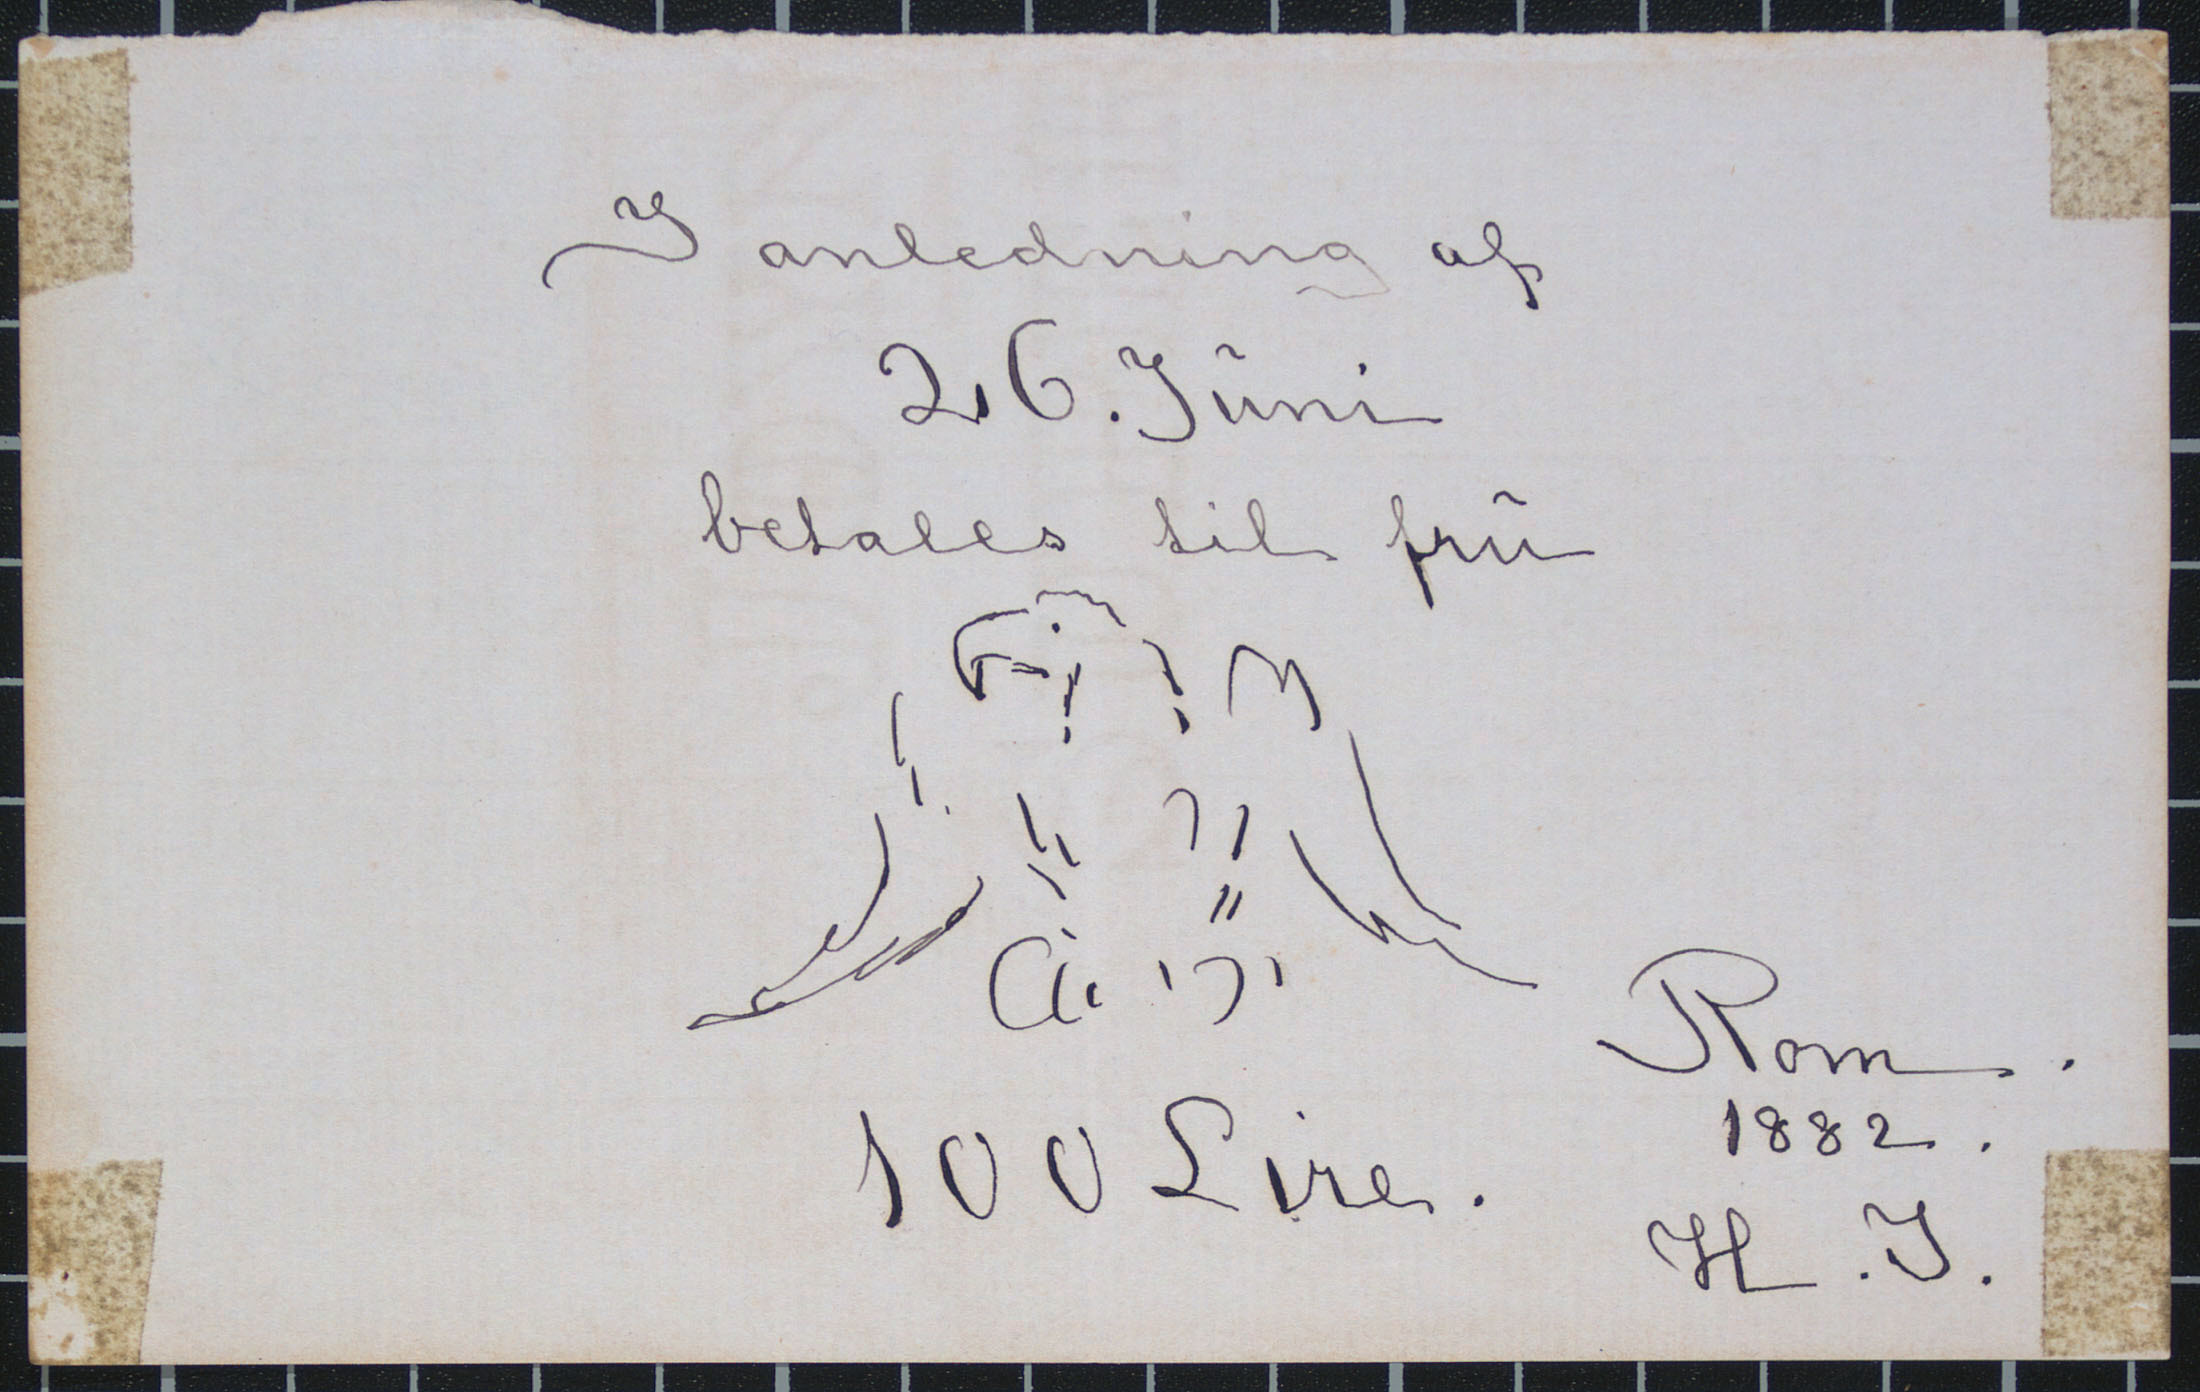 I anledning af
26. Jūni
betales til frū
100 Lire.
Rom.
1882.
H. I.